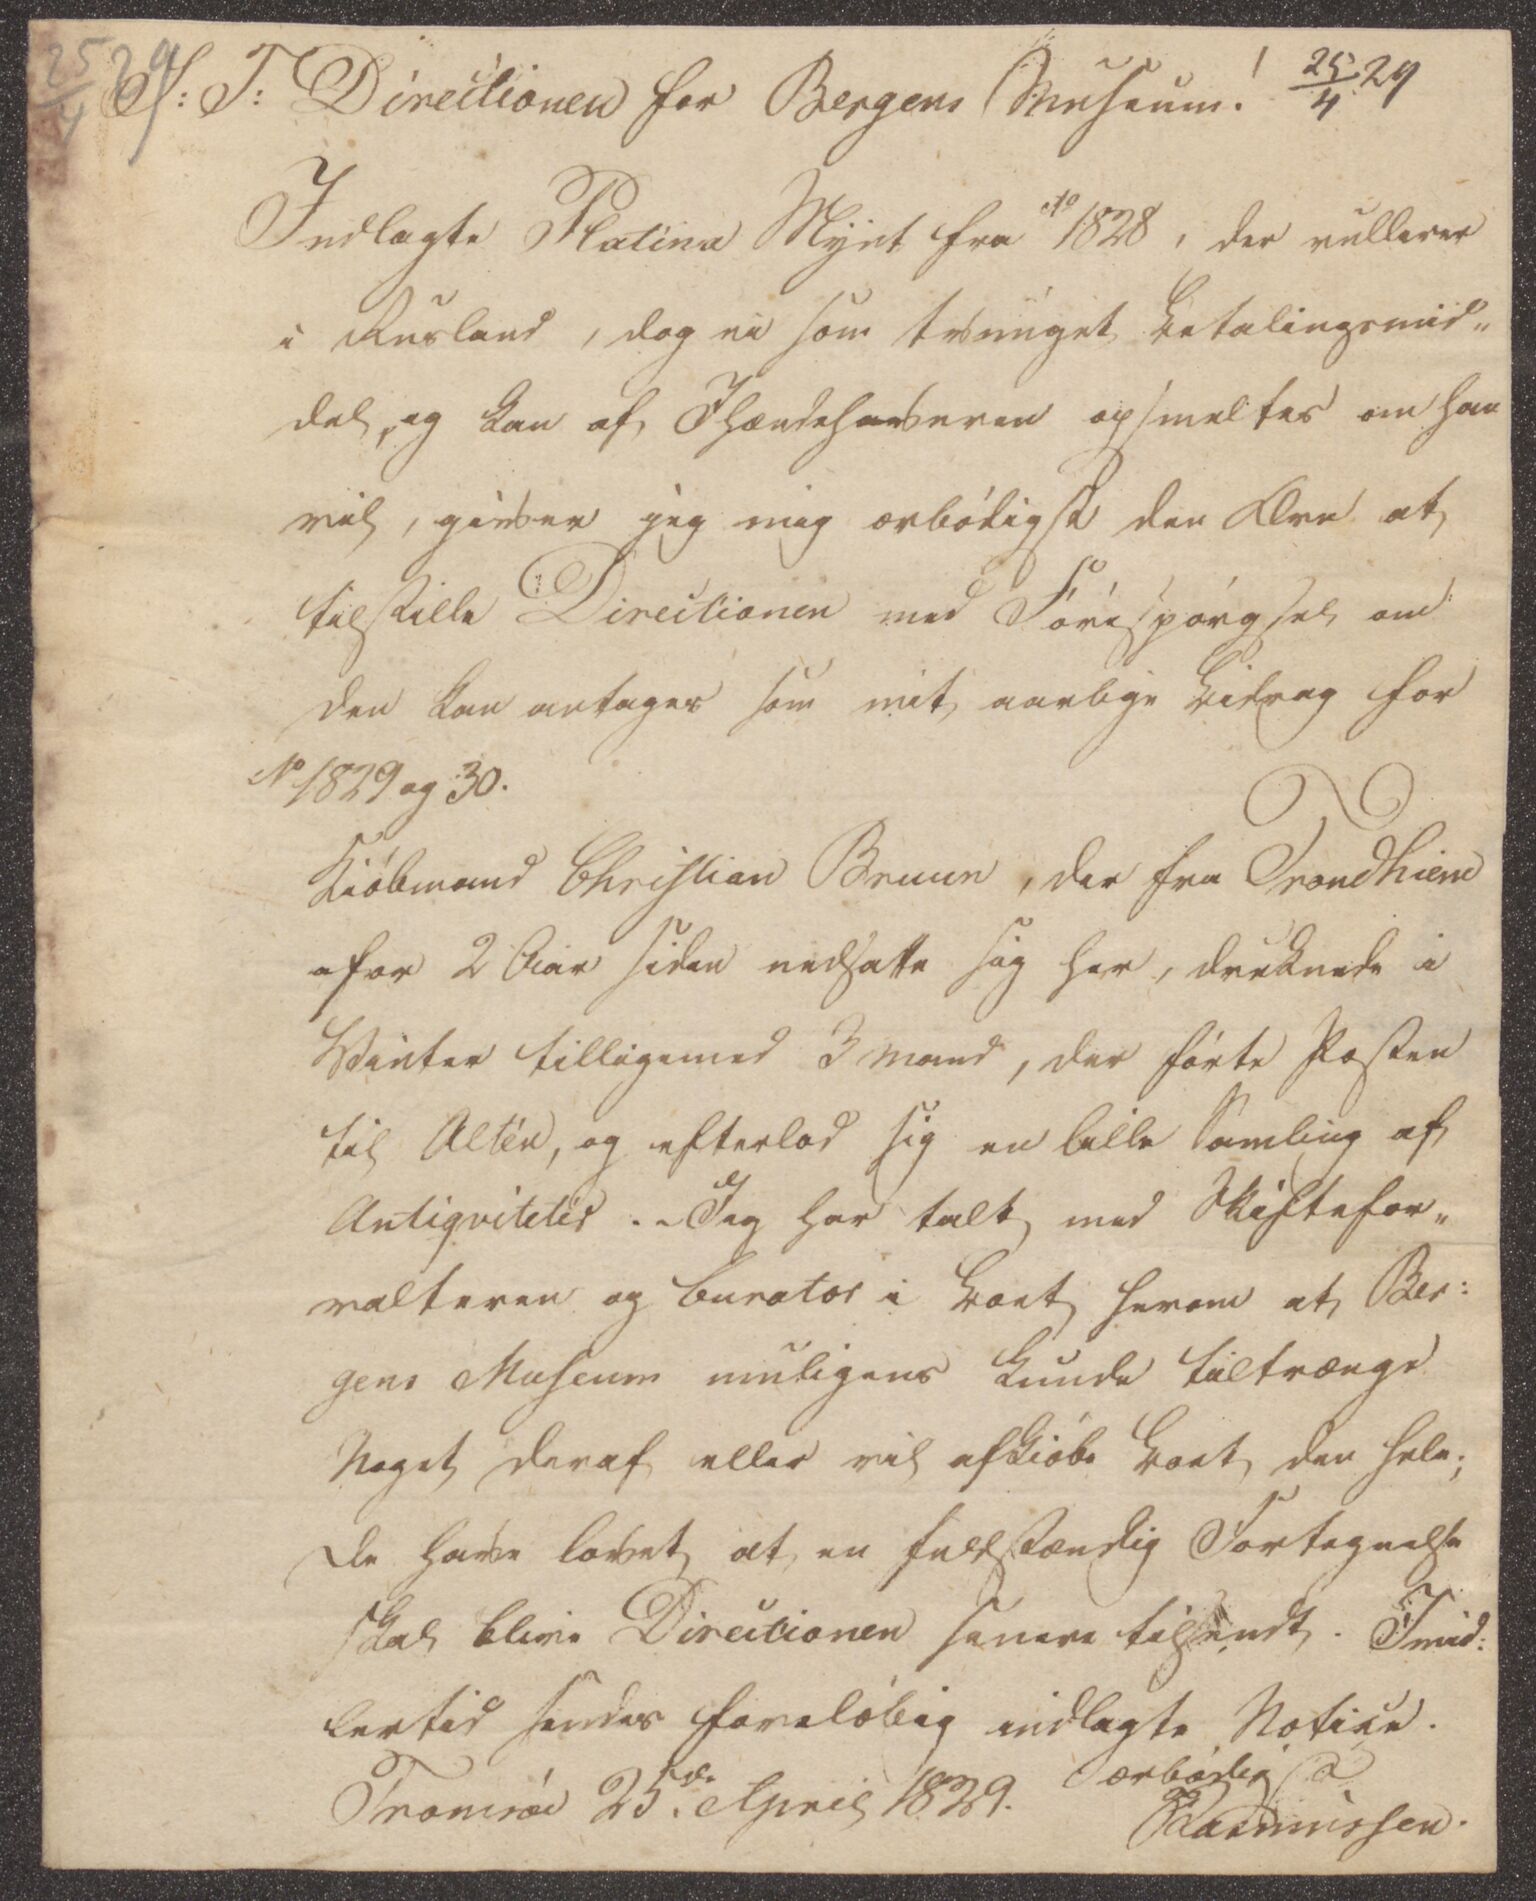 25/4 29
S: T: Directionen for Bergens Museum! 25/4 29
Indlagte Platina Mynt fra Ao 1828, der rullerer
i Rusland, dog ei som tvunget Betalingsmid„
del, og kan af Ihændehaveren opsmeltes om han
vil, giver jeg mig ærbödigst den Ære at
tilstille Directionen med Forespörgsel om
den kan antages som mit aarlige Bidrag for
Ao 1829 og 30.
Kiöbmand Christian Bruun, der fra Trondhiem
for 2 Aar siden nedsatte sig her, druknede i
Vinter tilligemed 3 Mand, der förte Posten
til Alten, og efterlod sig en lille Samling af
Antiqviteter. - Jeg har talt med Skiftefor„
valteren og Curator i Boet herom at Ber:
gens Museum muligens kunde tiltrænge
Noget deraf eller vil afkiöbe Boet den hele;
De have lovet at en fuldstændig Fortegnelse
skal blive Directionen senere tilsendt. Imid:
lertid sendes foreløbig indlagte Notice.
Tromsöe 25de April 1829. ærbödigst
Rasmussen.